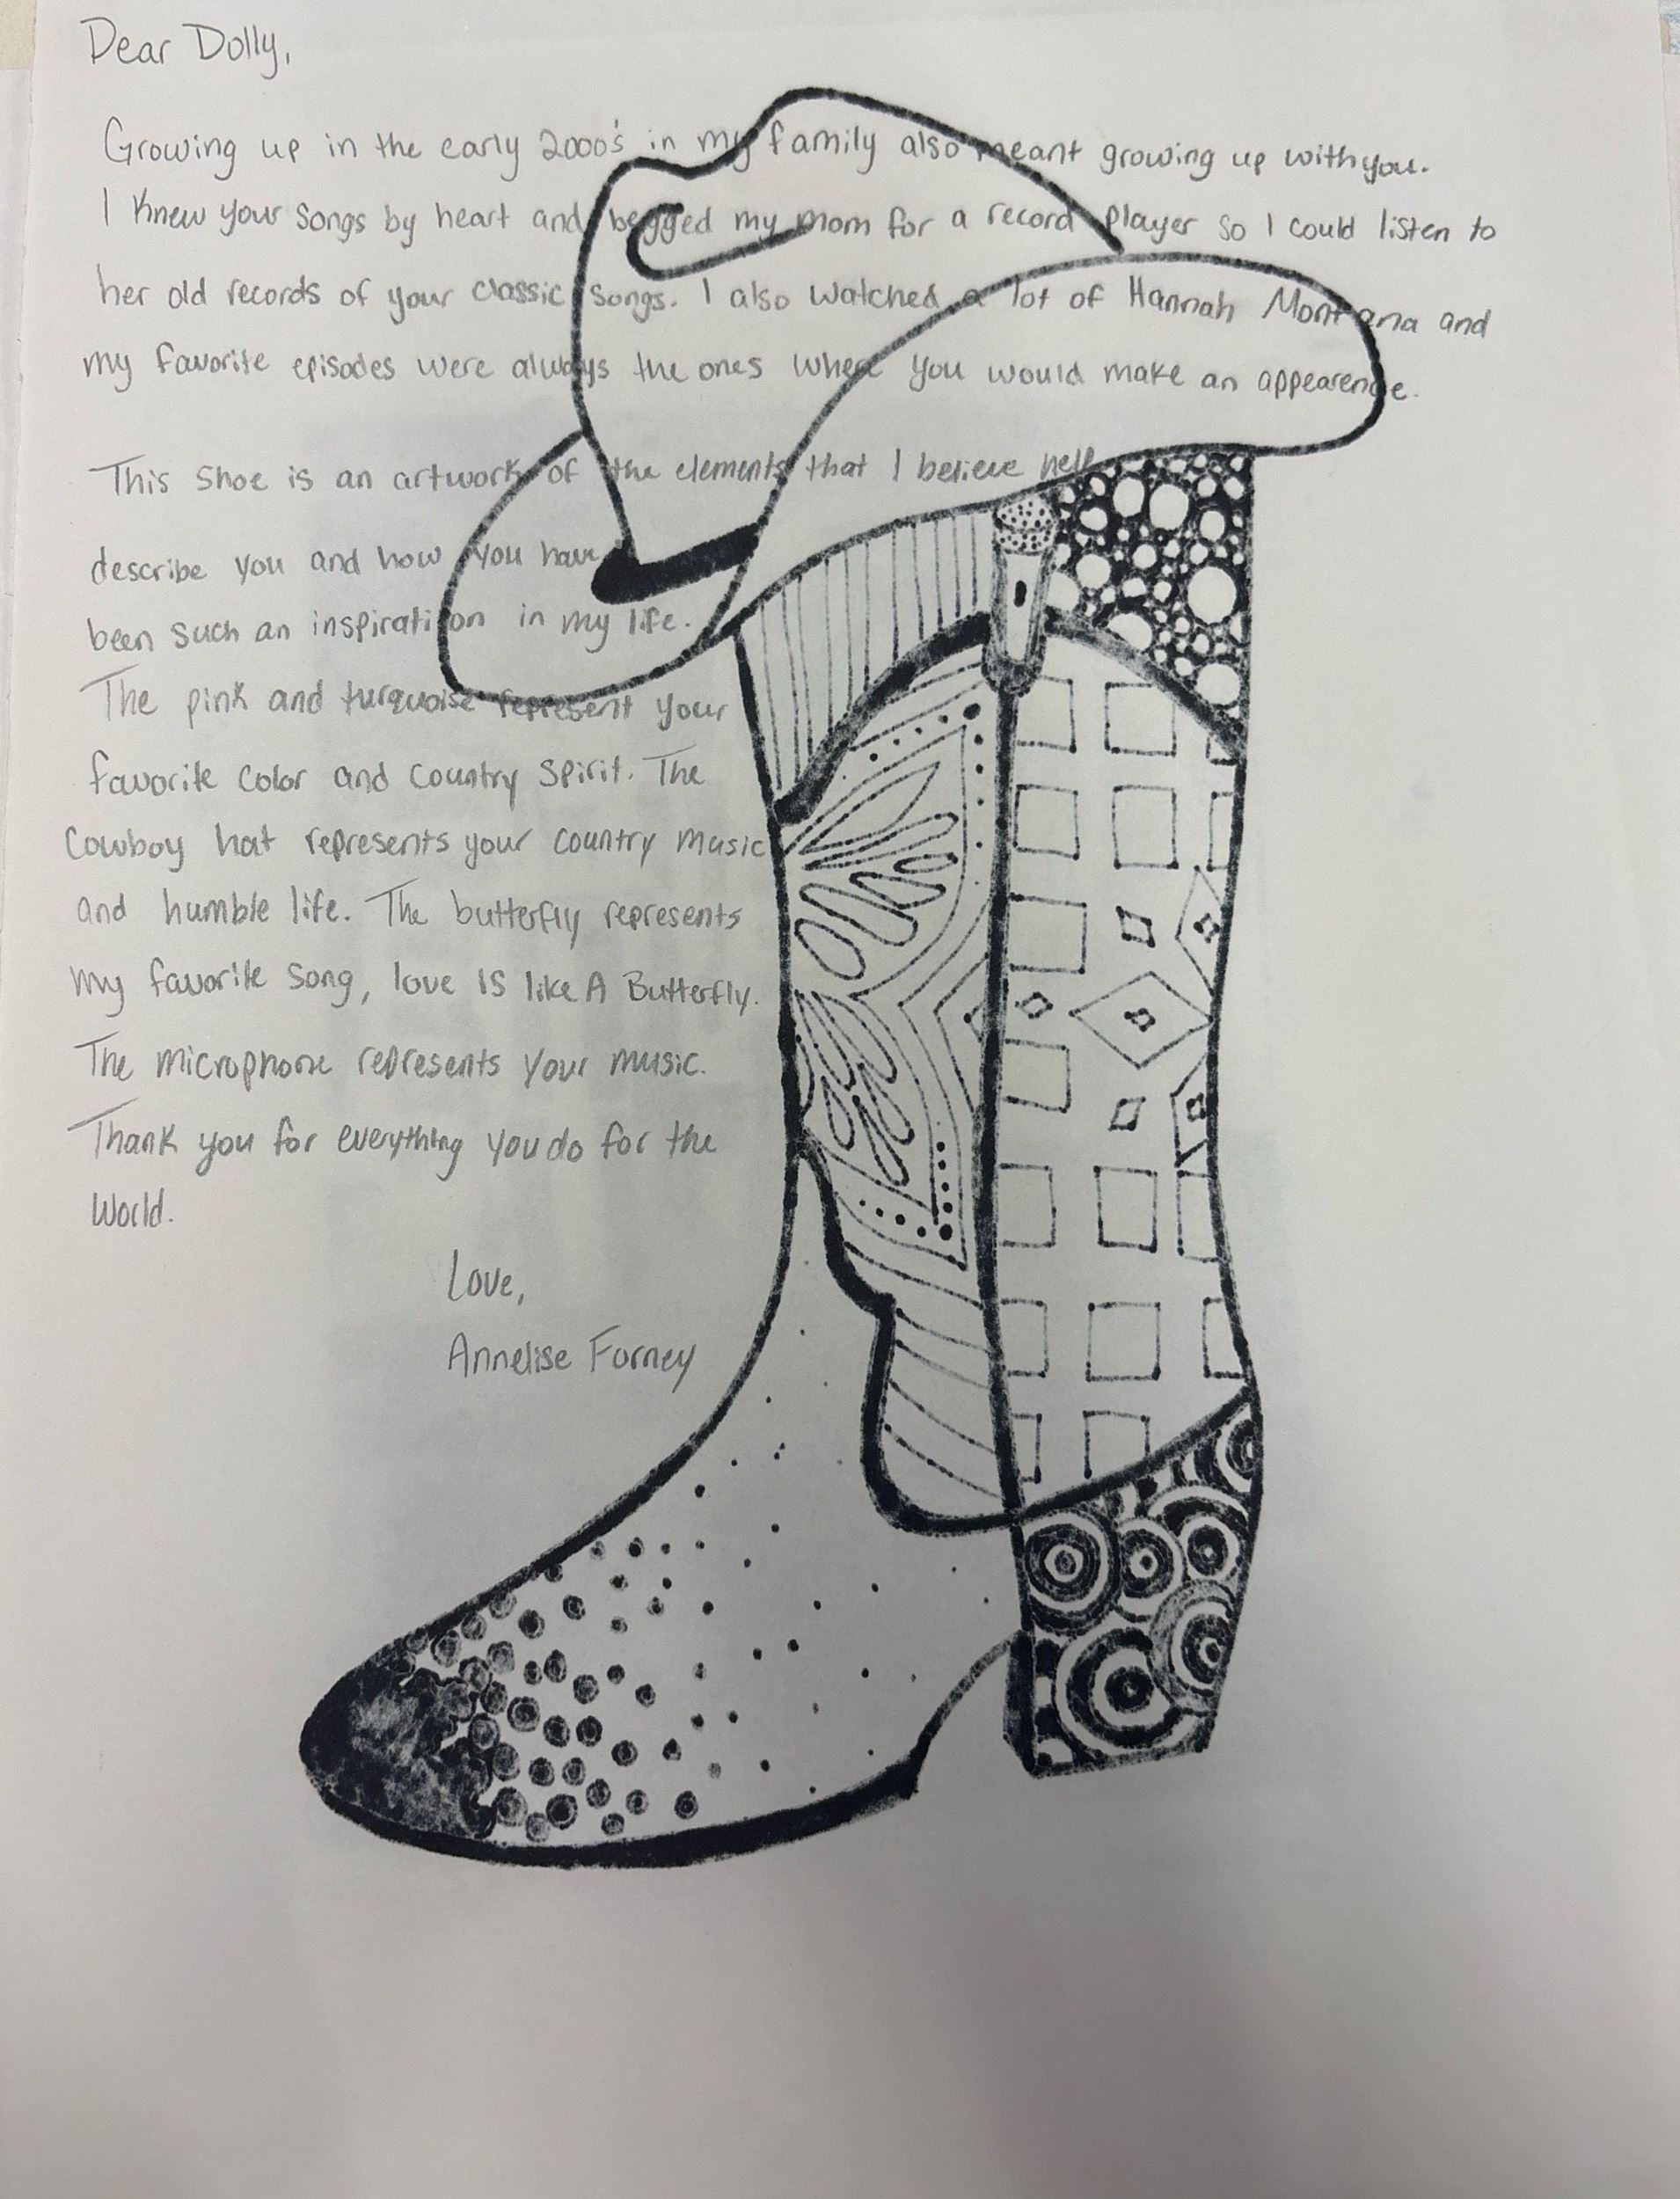 Dear Dolly,
Growing up in the early 2000's in my family also meant growing up with you.
I knew your songs by heart and begged my mom for a record player so I could listen to
her old records of your classic songs. I also watched a lot of Hannah Montana and
my favorite episodes were always the ones where you would make an appearence.
This shoe is an artwork of the elements that I believe help
describe you and how you have
been such an inspiration in my life.
The pink and turquoise represent your
favorite color and country spirit. The
cowboy hat represents your country music
and humble life. The butterfly represents
my favorite song, love IS like A Butterfly.
The microphone represents your music.
Thank you for everything you do for the
World.
Love,
Annelise Forney